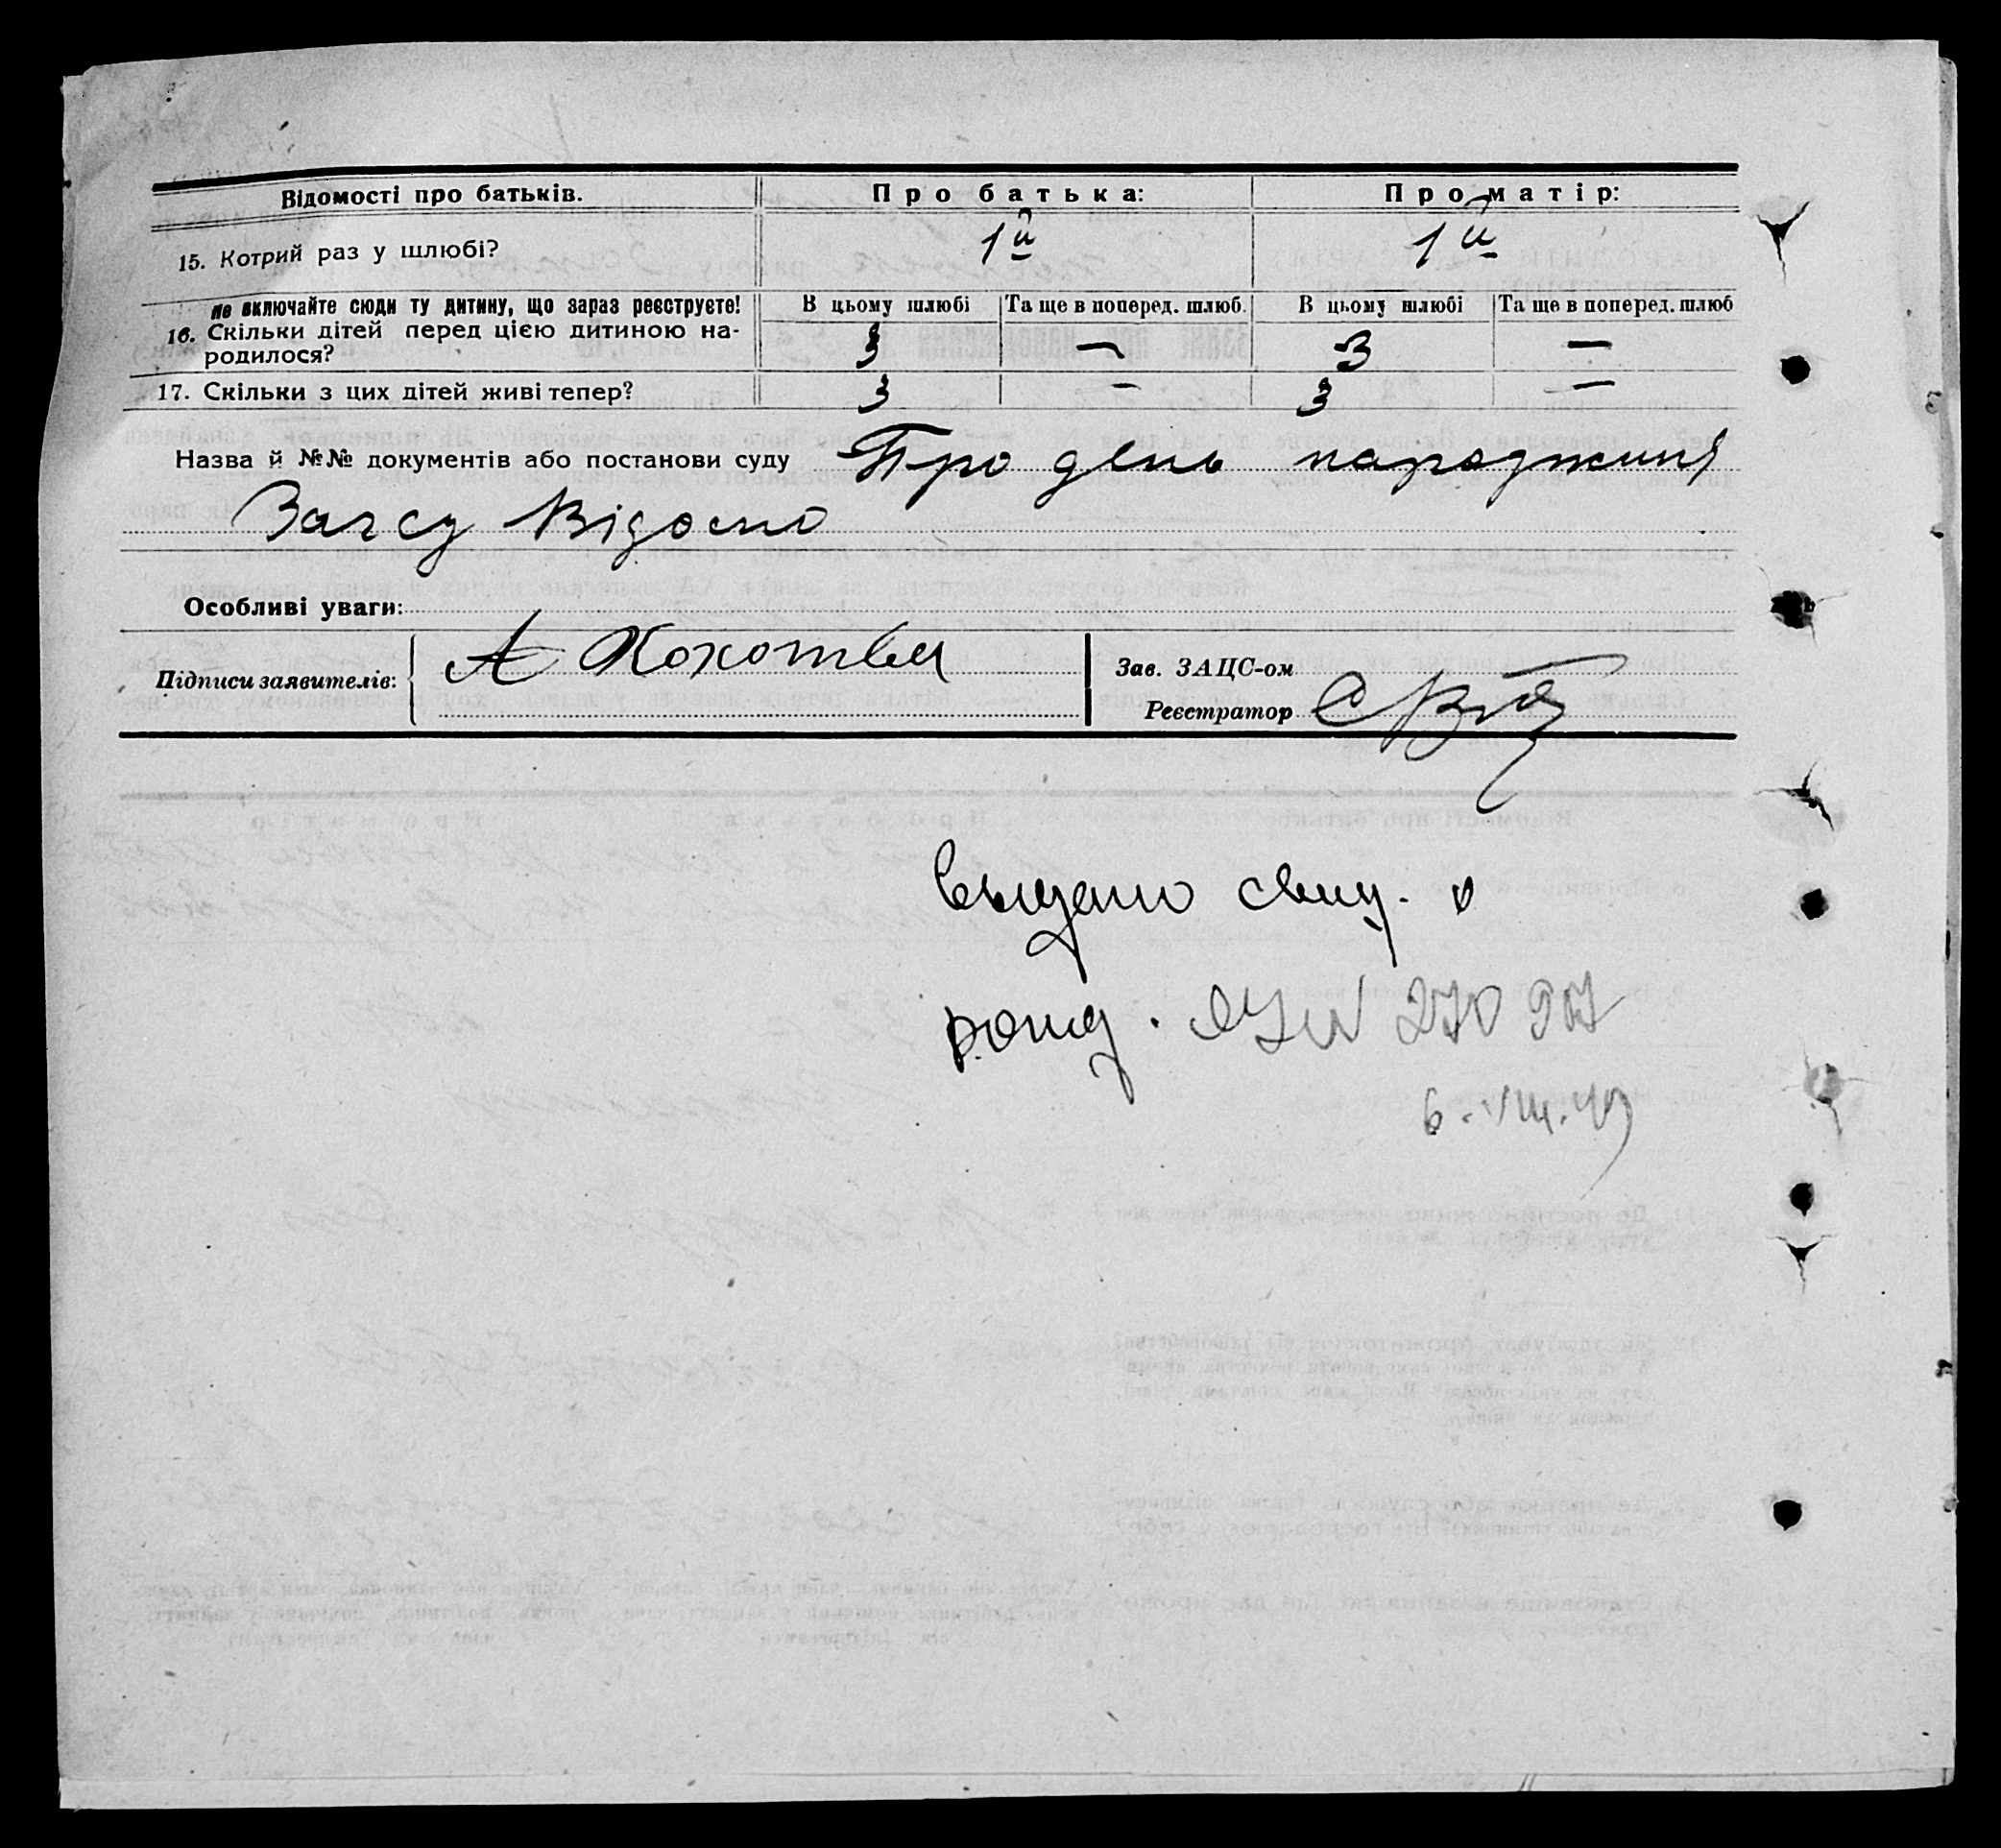 Відомості про батьків. Про батька: Про матір:
15. Котрий раз у шлюбі? 1й 1й
не включайте сюди ту дитину, що зараз реєструєте! В цьому шлюбі Та ще в поперед. шлюб. В цьому шлюбі Та ще в поперед. шлюб
16. Скільки дітей перед цією дитиною на-
родилося? 3 — 3 —
17. Скільки з цих дітей живі тепер? 3 — 3 —
Назва й №№ документів або постанови суду Про день народжиня
Загсу Відомо
Особливі уваги:
Підписи заявителів: А
Зав. ЗАЦС-ом
Реєстратор
Выдано свид. о
рожд. 270
6. VIII.